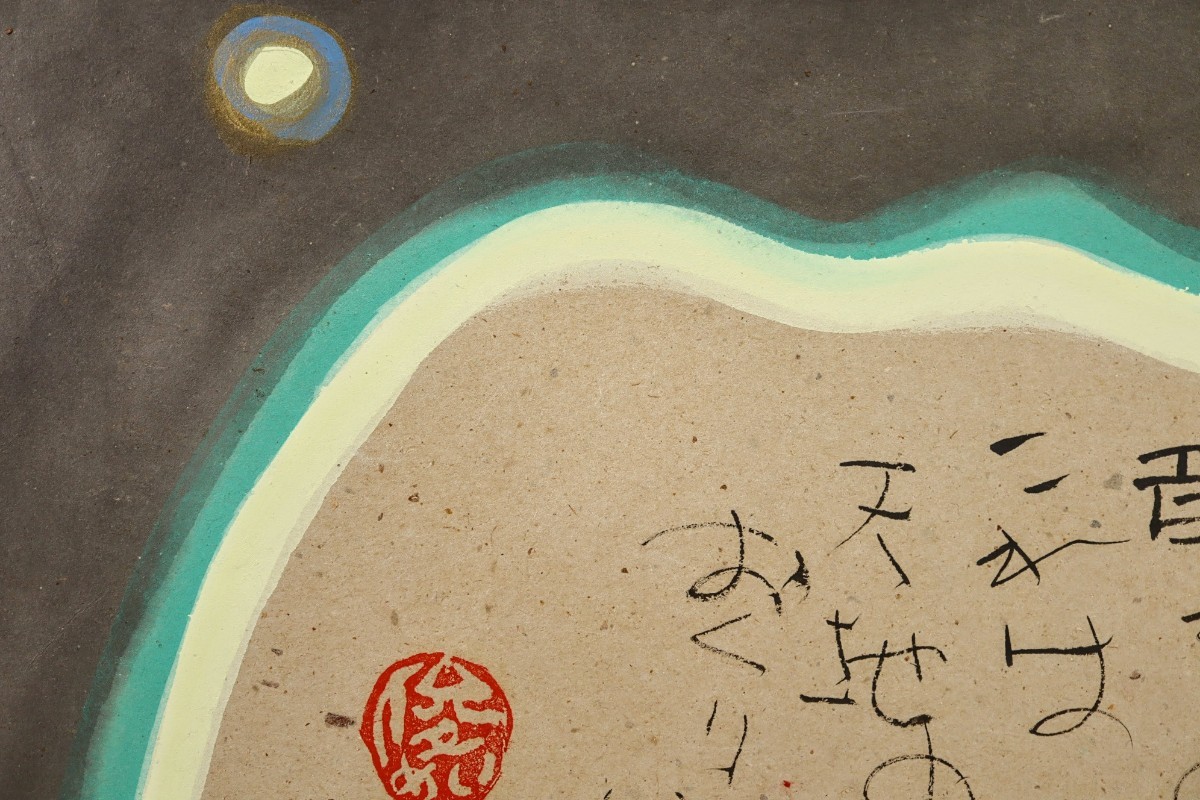 音
これは
天地の
おくり